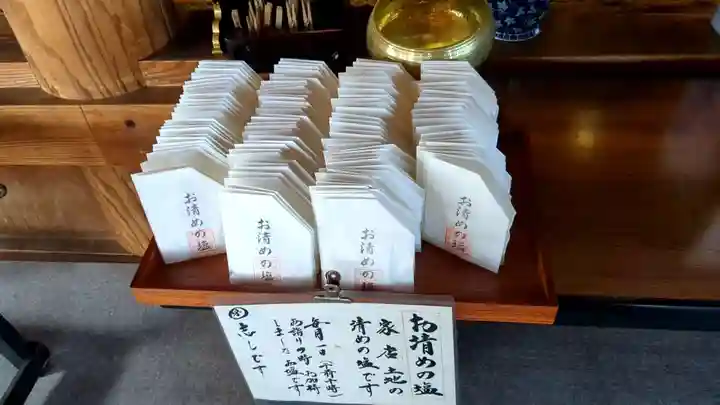 お清めの塩
お清めの塩
お清めの塩
お清めの塩
お清めの塩
家・店・土地の
清めの塩です
毎月一日(午前十時)
お詣りの時 お加持
しました お塩です
志しです